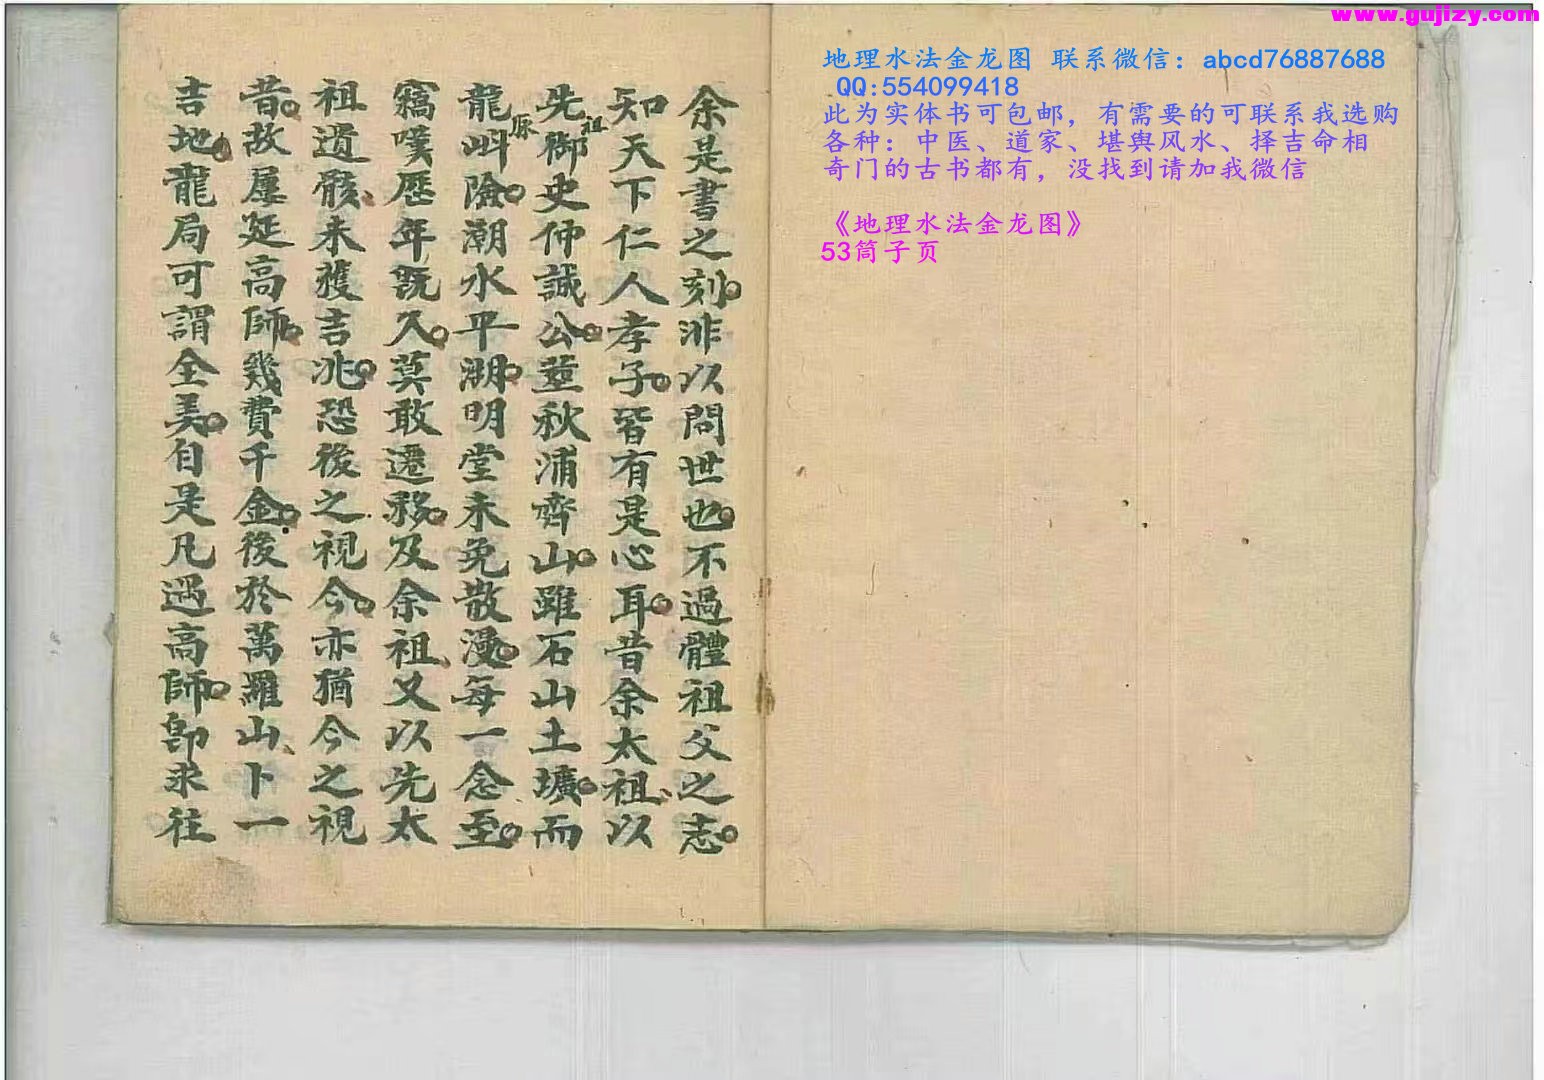 www.gujizy.com
地理水法金龙图 联系微信：abcd76887688
QQ:554099418
此为实体书可包邮，有需要的可联系我选购
各种：中医、道家、堪舆风水、择吉命相
奇门的古书都有，没找到请加我微信
《地理水法金龙图》
53筒子页
余是書之刻非以問世也不過體祖父之志
知天下仁人孝子皆有是心耳昔余太祖以
先祖御史仲誠公塟秋浦齊山雖石山土壙而
龍脈㕦險潮水平湖明堂未免散漫每一念至
竊嘆歷年既久莫敢遷移及余祖又以先太
祖遺骸未獲吉兆恐後之視今亦猶今之視
昔故屢延高師幾費千金後於萬羅山卜一
吉地龍局可謂全美自是凡遇高師卽求往